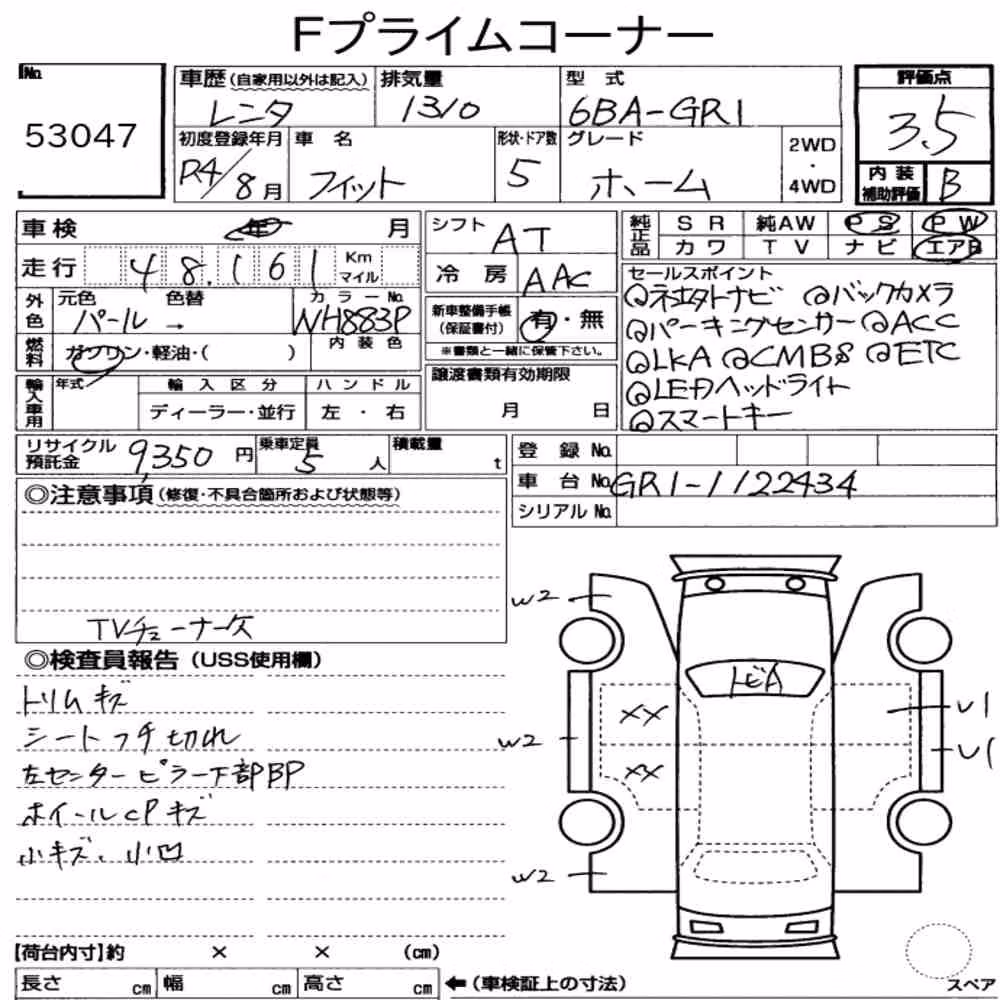 Fプライムコーナー
No.
53047
車歴(自家用以外は記入)
レンタ
排気量
1310
型式
6BA-GR1
評価点
3.5
初度登録年月
R4/8月
車名
フィット
形状・ドア数
5
グレード
ホーム
2WD
・
4WD
内装
補助評価
B
車検
年
月
走行
48,161
Km
マイル
シフト
AT
冷房
AAC
純正品
SR
純AW
PS
PW
カワ
TV
ナビ
エアB
外色
元色
パール
色替
→
カラーNo.
NH883P
内装色
燃料
ガソリン・軽油・( )
新車整備手帳
(保証書付)
有・無
※書類と一緒に保管下さい。
セールスポイント
◎ネエタトナビ ◎バックカメラ
◎パーキングセンサー ◎ACC
◎LKA ◎CMBS ◎ETC
◎LEDヘッドライト
◎スマートキー
輸入車用
年式
輸入区分
ディーラー・並行
ハンドル
左・右
譲渡書類有効期限
月 日
リサイクル
預託金
9,350円
乗車定員
5人
積載量
t
登録No.
車台No.
GR1-1122434
シリアルNo.
◎注意事項(修復・不具合箇所および状態等)
TVチューナー欠
◎検査員報告(USS使用欄)
トリムキズ
シートフチ切れ
左センターピラー下部BP
ホイールCPキズ
小キズ、小凹
W2
トビA
XX
U1
W2
XX
U1
W2
【荷台内寸】約 × × (cm)
長さ cm
幅 cm
高さ cm
←(車検証上の寸法)
スペア